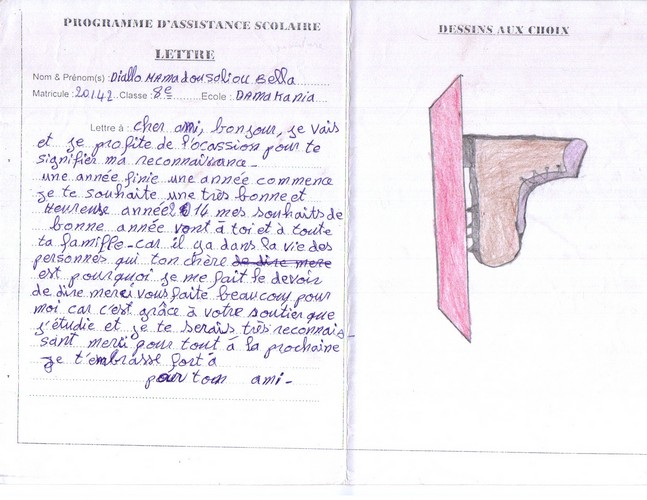 PROGRAMME D'ASSISTANCE SCOLAIRE
LETTRE
Nom & Prénom(s) : Diallo Mamadou saliou Bella
Matricule : 20142 Classe : 8e Ecole : DAMAKANIA
Lettre à : cher ami, bonjour, je vais
et je profite de l'ocassion pour te
signifier ma reconnaissance -
une année finie une année commence
je te souhaite une très bonne et
Heureuse année 2014 mes souhaits de
bonne année vont à toi et à toute
ta famille - car il ya dans la vie des
personnes qui ton chère de dire mere
est pourquoi je me fait le devoir
de dire merci vous faite beaucoup pour
moi car c'est grâce à votre soutier que
j'étudie et je te serais très reconnais-
sant merci pour tout à la prochaine
je t'embrasse fort à
pour ton ami -
DESSINS AUX CHOIX